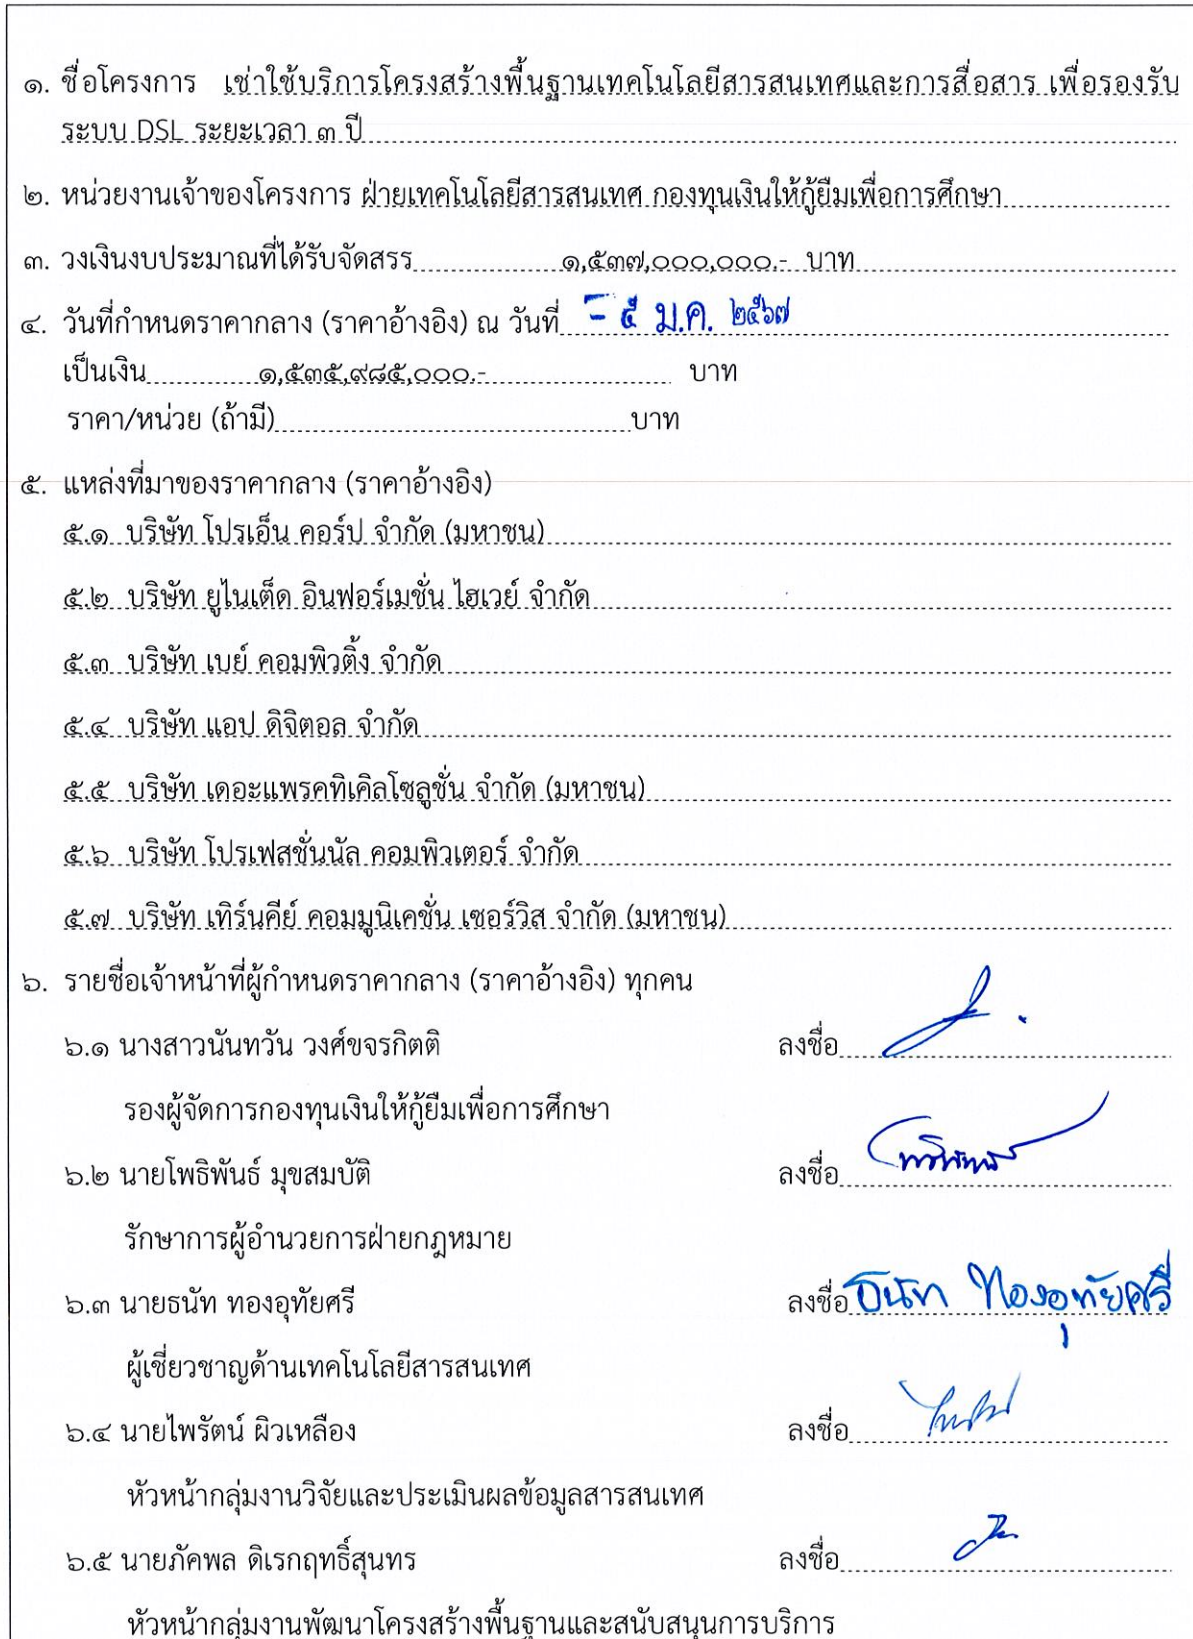 ๑. ชื่อโครงการ เช่าใช้บริการโครงสร้างพื้นฐานเทคโนโลยีสารสนเทศและการสื่อสาร เพื่อรองรับ
ระบบ DSL ระยะเวลา ๓ ปี
๒. หน่วยงานเจ้าของโครงการ ฝ่ายเทคโนโลยีสารสนเทศ กองทุนเงินให้กู้ยืมเพื่อการศึกษา
๓. วงเงินงบประมาณที่ได้รับจัดสรร ๑,๕๓๗,๐๐๐,๐๐๐.- บาท
๔. วันที่กำหนดราคากลาง (ราคาอ้างอิง) ณ วันที่ - ๕ ม.ค. ๒๕๖๗
เป็นเงิน ๑,๕๓๕,๙๘๕,๐๐๐.- บาท
ราคา/หน่วย (ถ้ามี) บาท
๕. แหล่งที่มาของราคากลาง (ราคาอ้างอิง)
๕.๑ บริษัท โปรเอ็น คอร์ป จำกัด (มหาชน)
๕.๒ บริษัท ยูไนเต็ด อินฟอร์เมชั่น ไฮเวย์ จำกัด
๕.๓ บริษัท เบย์ คอมพิวติ้ง จำกัด
๕.๔ บริษัท แอป ดิจิตอล จำกัด
๕.๕ บริษัท เดอะแพรคทิเคิลโซลูชั่น จำกัด (มหาชน)
๕.๖ บริษัท โปรเฟสชั่นนัล คอมพิวเตอร์ จำกัด
๕.๗ บริษัท เทิร์นคีย์ คอมมูนิเคชั่น เซอร์วิส จำกัด (มหาชน)
๖. รายชื่อเจ้าหน้าที่ผู้กำหนดราคากลาง (ราคาอ้างอิง) ทุกคน
๖.๑ นางสาวนันทวัน วงศ์ขจรกิตติ ลงชื่อ
รองผู้จัดการกองทุนเงินให้กู้ยืมเพื่อการศึกษา
๖.๒ นายโพธิพันธ์ มุขสมบัติ ลงชื่อ
รักษาการผู้อำนวยการฝ่ายกฎหมาย
๖.๓ นายธนัท ทองอุทัยศรี ลงชื่อ ธนัท ทองอุทัยศรี
ผู้เชี่ยวชาญด้านเทคโนโลยีสารสนเทศ
๖.๔ นายไพรัตน์ ผิวเหลือง ลงชื่อ
หัวหน้ากลุ่มงานวิจัยและประเมินผลข้อมูลสารสนเทศ
๖.๕ นายภัคพล ดิเรกฤทธิ์สุนทร ลงชื่อ
หัวหน้ากลุ่มงานพัฒนาโครงสร้างพื้นฐานและสนับสนุนการบริการ